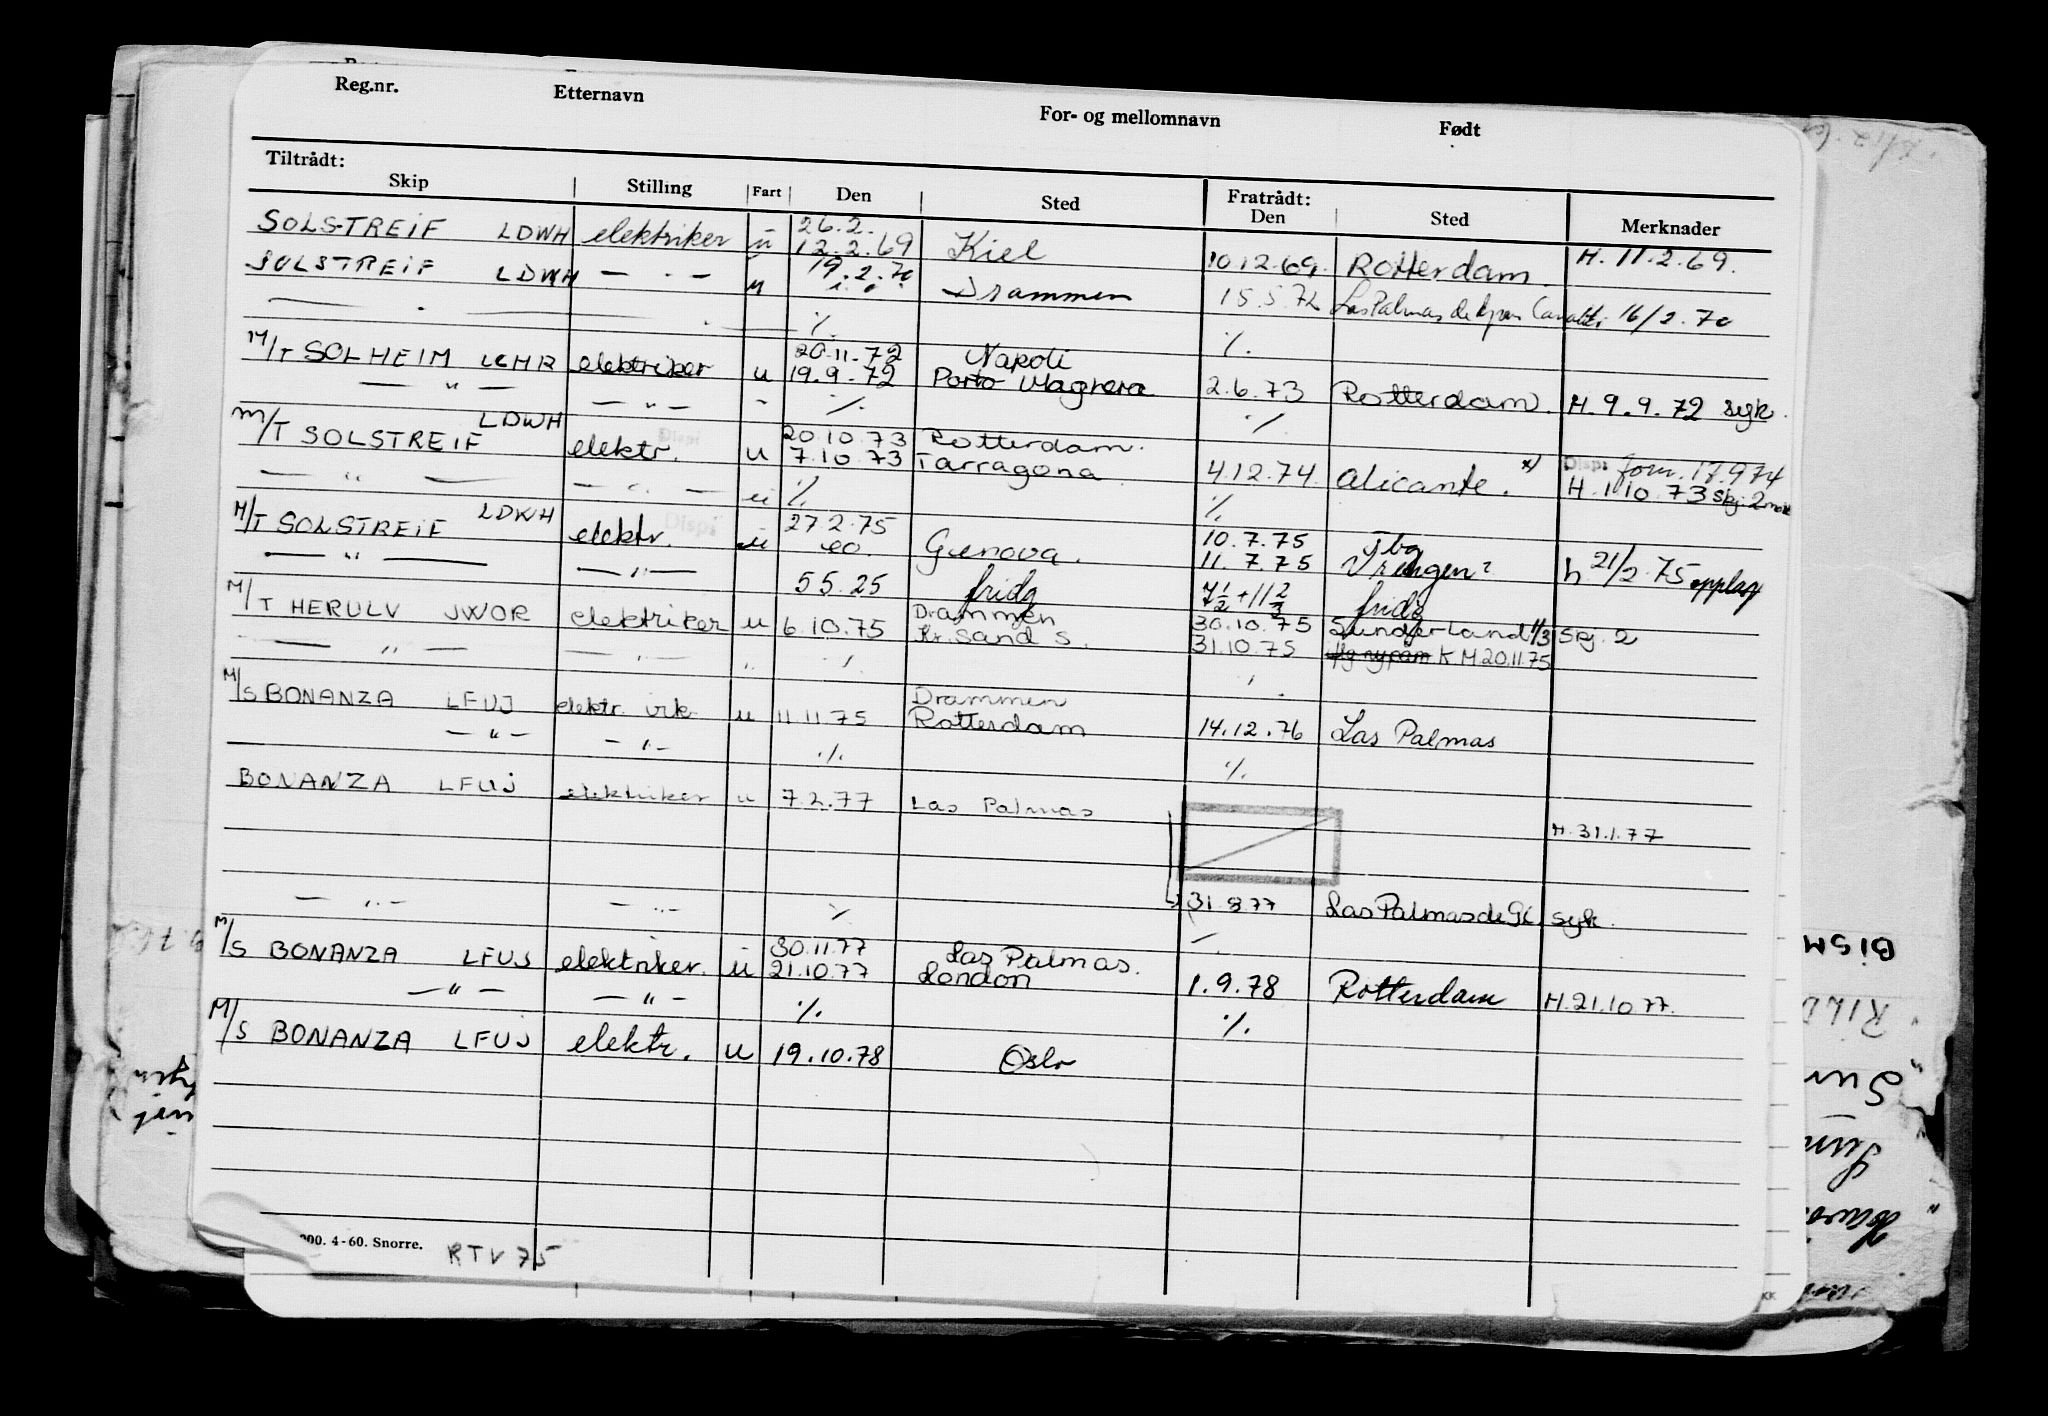 Reg.nr. Etternavn For- og mellomnavn Født
Tiltrådt: Fratrådt:
Skip Stilling Fart Den Sted Den Sted Merknader
26.2.
SOLSTREIF LDWH elektriker u 12.2.69 Kiel 10.12.69. Rotterdam. H. 11.2.69.
SOLSTREIF LDWH — " — u 19.2.70 Drammen 15.5.72 Las Palmas de 16/2.70
— " — ./.
./.
20.11.72 Napoli
M/T SOLHEIM LCHR elektriker u 19.9.72 Porto Magnera 2.6.73 Rotterdam. H. 9.9.72 syk.
— " — — " — - ./. ./.
LDWH 20.10.73 Rotterdam.
M/T SOLSTREIF elektr. u 7.10.73 Tarragona 4.12.74. alicante. x) Dispi forn. 17.9.74
Dispi
— " — — " — u ./. ./. H. 1.10.73 Skj. 2 mnd
LDWH 27.2.75 10.7.75 Tbg
M/T SOLSTREIF elektr. Dispi u eo. Genova. 11.7.75 Vrengen? h 21/2.75 opplag
— " — — " — 55.25 frida 7 1/2 + 11 2/3 frida
Drammen 30.10.75 Sunderland 11/3
M/T HERULV JWOR elektriker u 6.10.75 Kr.sand S. 31.10.75 K M 20.11.75 Skj. 2
— " — — " — " ./. ./.
Drammen
M/S BONANZA LFUJ elektr. vik. u 11.11.75 Rotterdam 14.12.76 Las Palmas
— " — — " — ./. ./.
BONANZA LFUJ elektriker u 7.2.77 Las Palmas
H. 31.1.77
— " — — " — ./. 31.8.77 Las Palmas de GC syk.
30.11.77 Las Palmas. ./.
M/S BONANZA LFUJ elektriker. u 21.10.77 London 1.9.78 Rotterdam H. 21.10.77.
— " — — " — ./. ./.
M/S BONANZA LFUJ elektr. u 19.10.78 Oslo
000. 4-60. Snorre. RTV 75
KK
BISM